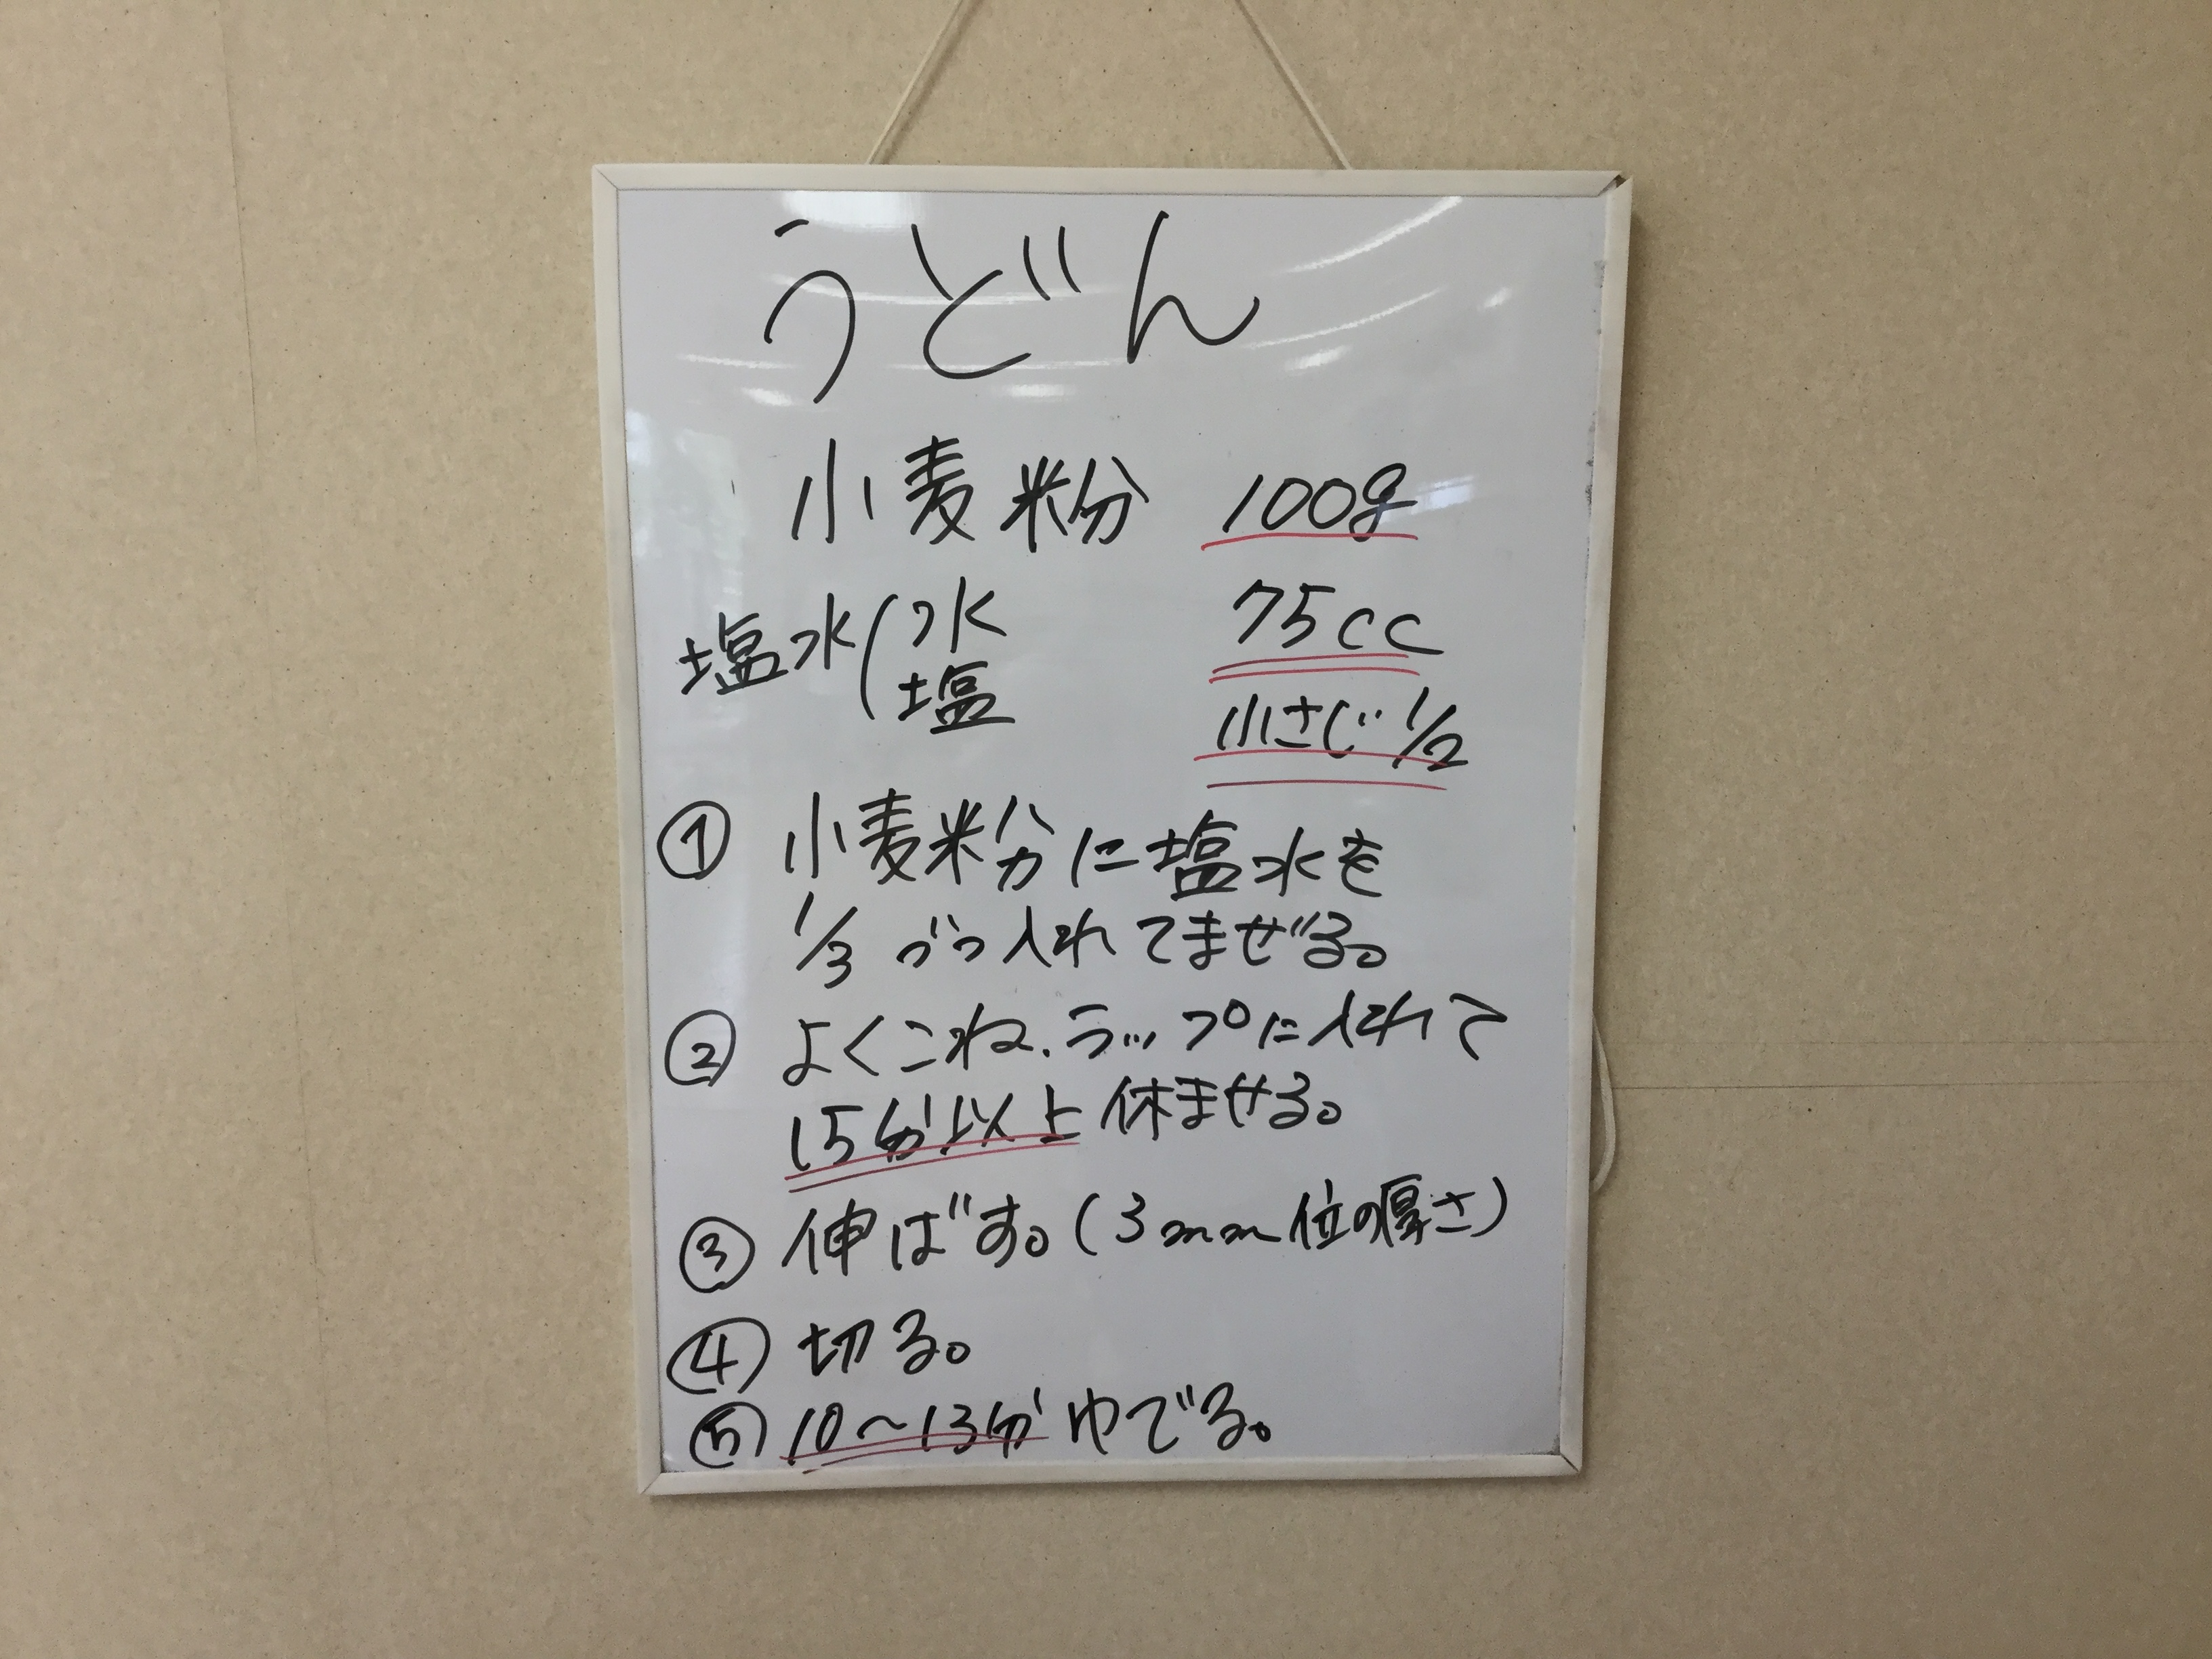 うどん
小麦粉 100g
塩水(水 75cc
塩 小さじ1/2
① 小麦粉に塩水を
1/3づつ入れてまぜる。
② よくこね、ラップに入れて
15分以上休ませる。
③ 伸ばす。(3mm位の厚さ)
④ 切る。
⑤ 10～13分ゆでる。